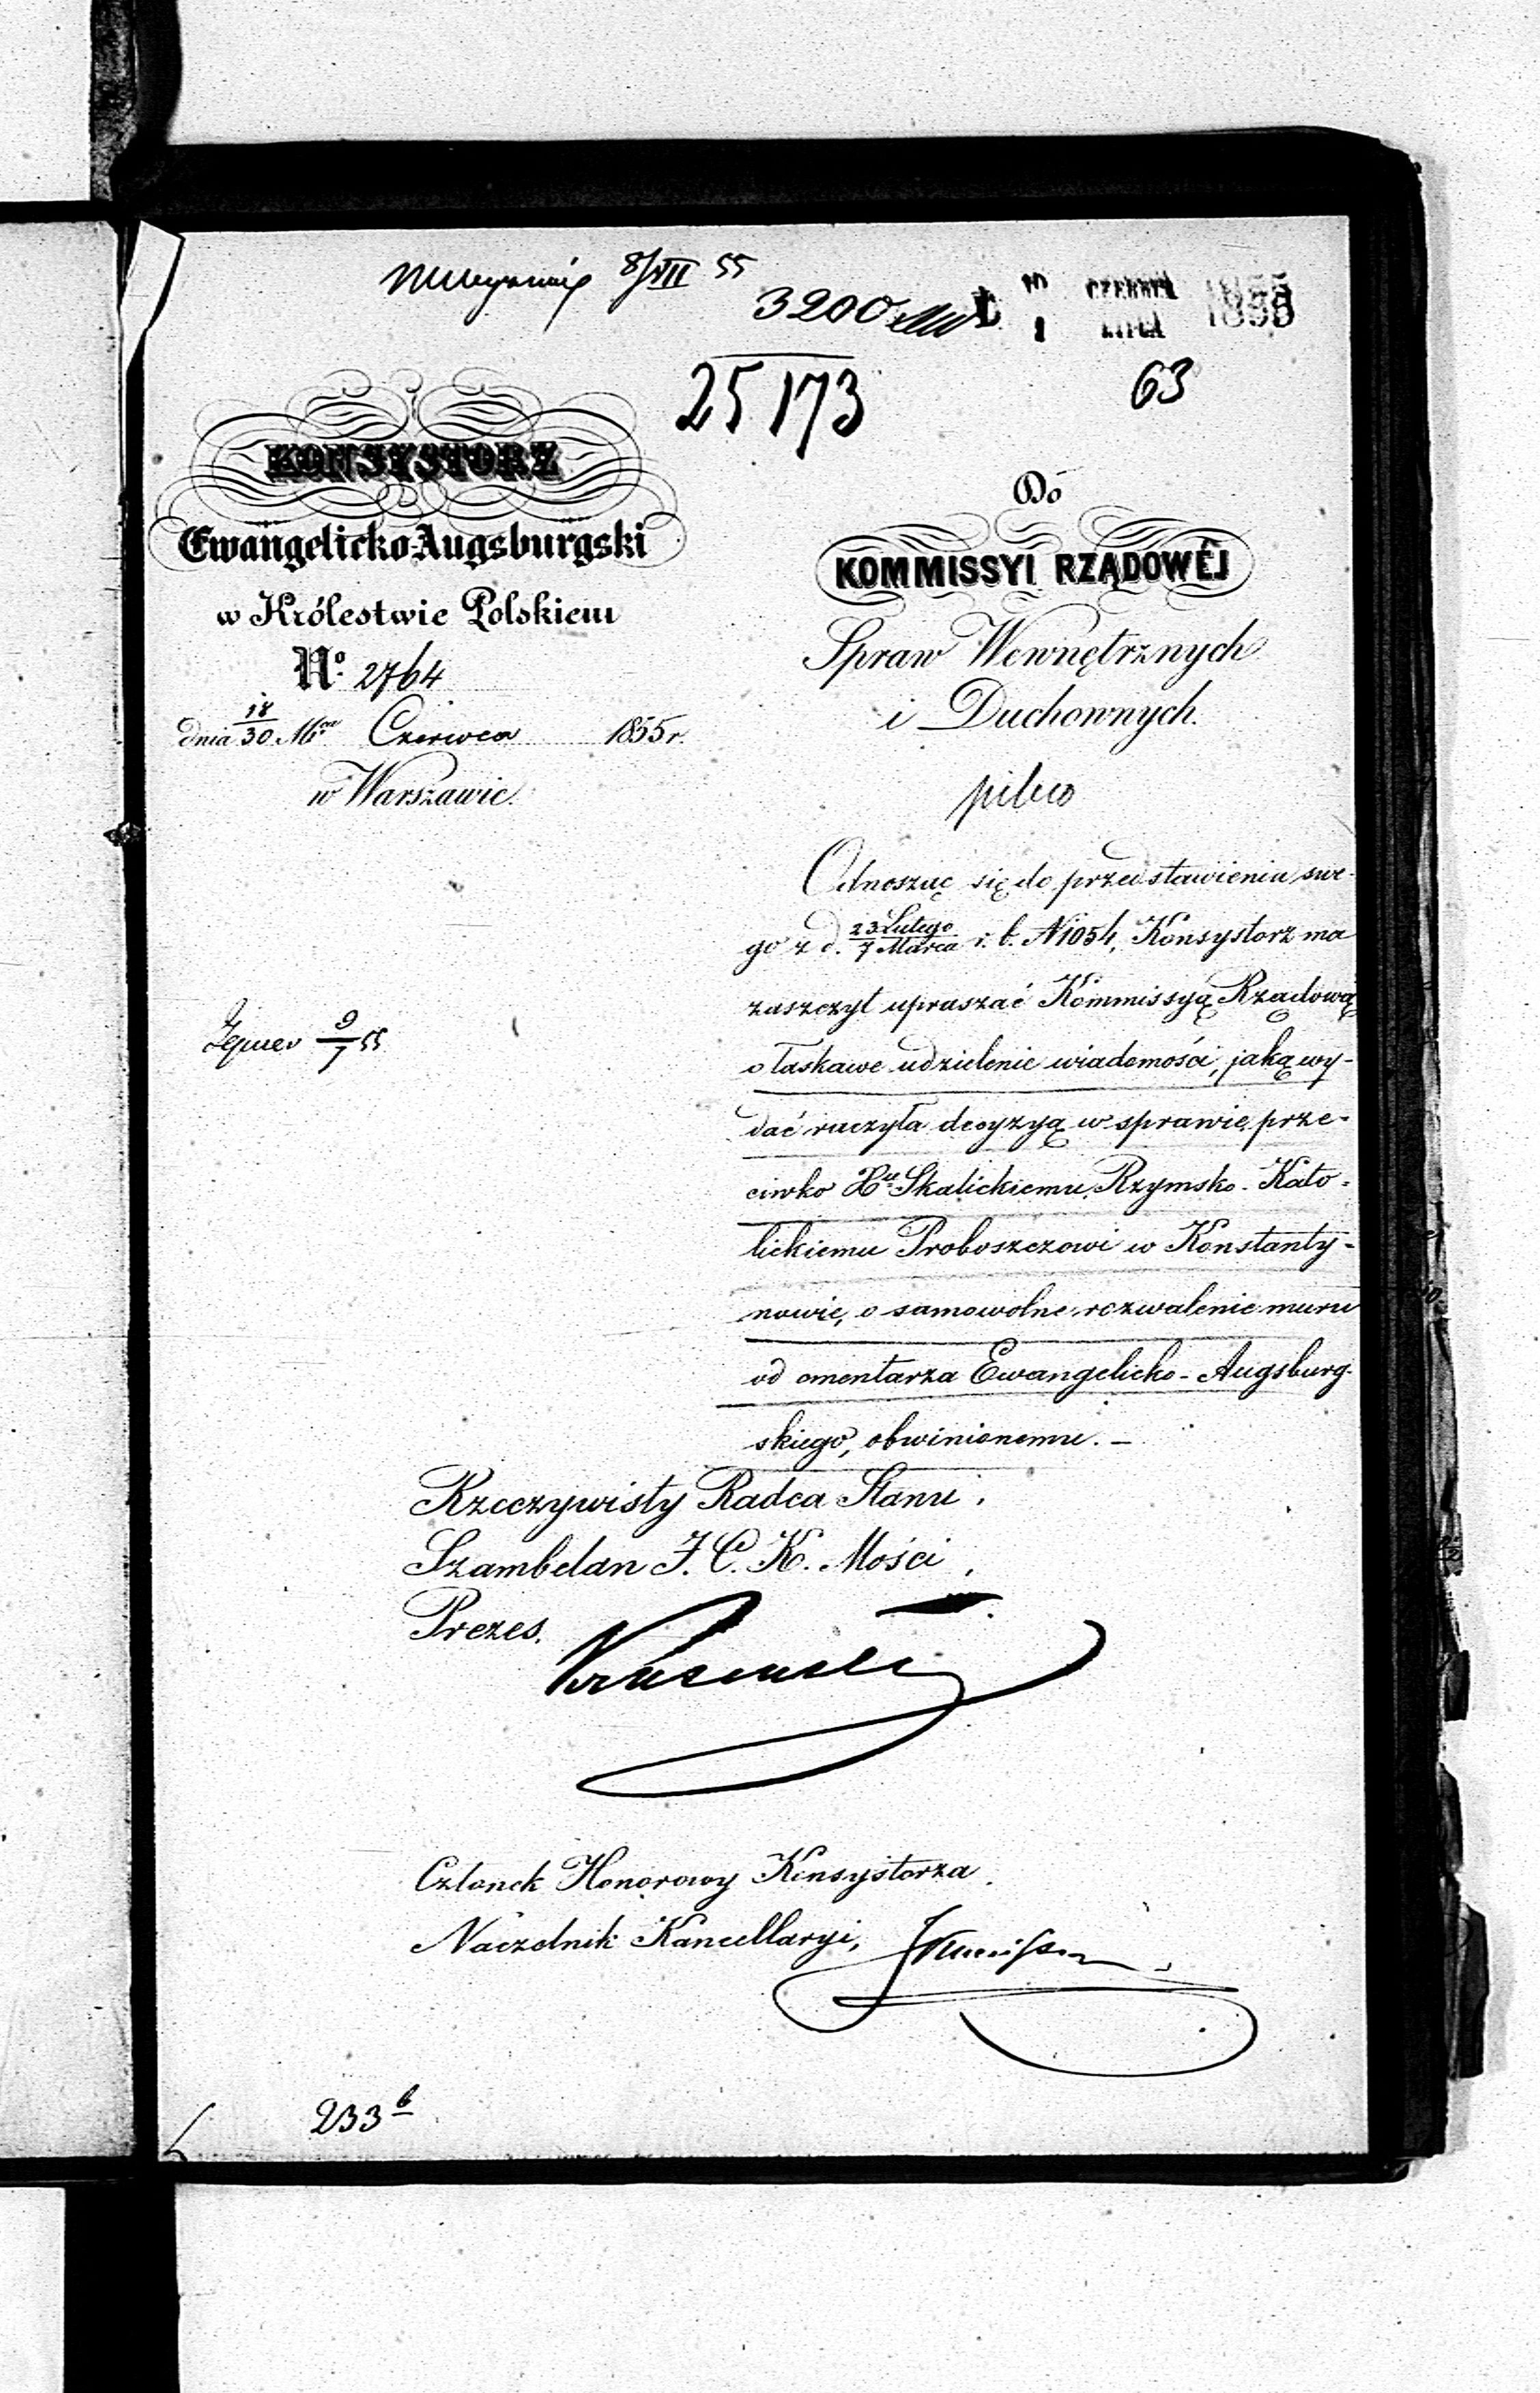 8/VII 55
3200
19 CZERWCA 1855
1 LIPCA
25173
63
KONSYSTORZ
Ewangelicko-Augsburgski
w Królestwie Polskiem
No. 2764
dnia 18/30 Mca Czerwca 1855 r.
w Warszawie.
Do
KOMMISSYI RZĄDOWÉJ
Spraw Wewnętrznych
i Duchownych.
pilno
Odnosząc się do przedstawienia swe-
go z d. 23 Lutego/7 Marca r. b. N 1054, Konsystorz ma
zaszczyt upraszać Kommissyą Rządową
o łaskawe udzielenie wiadomości, jaką wy-
dać raczyła decyzyą w sprawie prze-
ciwko Xu Skalickiemu, Rzymsko-Kato-
lickiemu Proboszczowi w Konstanty-
nowie, o samowolne rozwalenie muru
od cmentarza Ewangelicko-Augsburg-
skiego, obwinionemu. —
9/7 55
Rzeczywisty Radca Stanu,
Szambelan J. C. K. Mości,
Prezes.
Członek Honorowy Konsystorza
Naczelnik Kancellaryi,
233 b